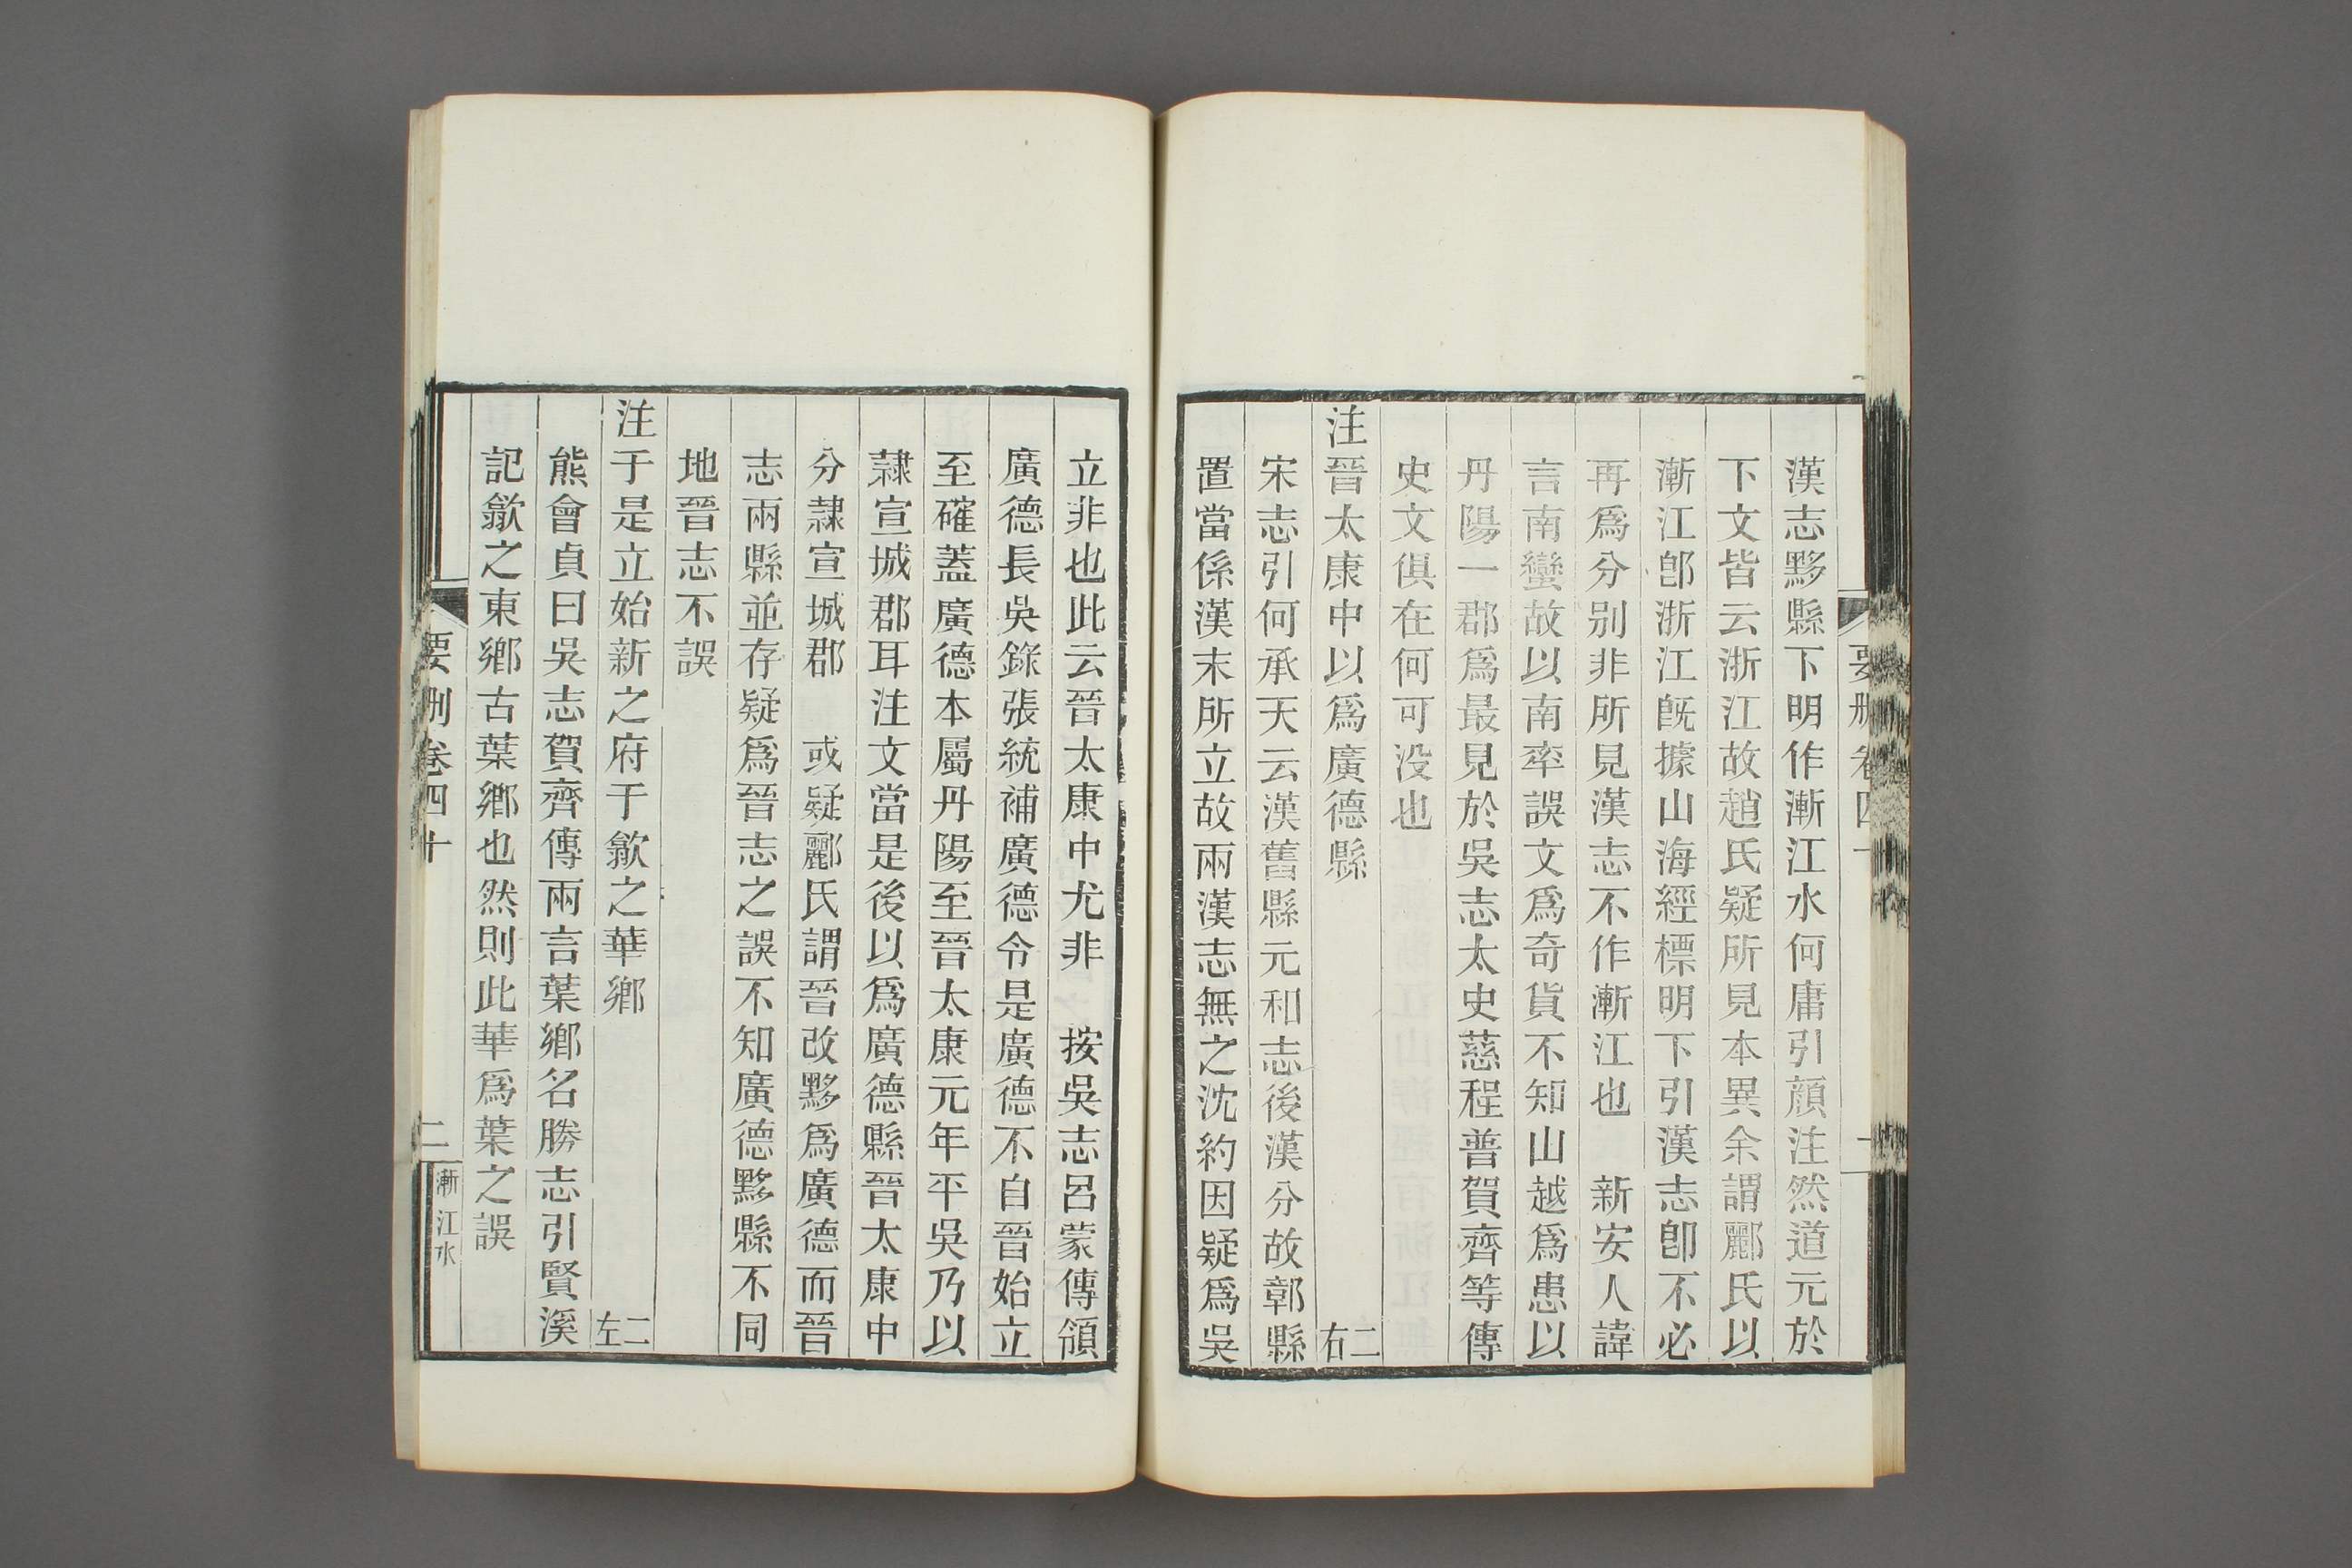 漢志黟縣下明作漸江水何庸引顏注然道元於
下文皆云浙江故趙氏疑所見本異余謂酈氏以
漸江卽浙江旣據山海經標明下引漢志卽不必
再爲分别非所見漢志不作漸江也　新安人諱
言南蠻故以南率誤文爲奇貨不知山越爲患以
丹陽一郡爲最見於吳志太史慈程普賀齊等傳
史文俱在何可没也
注晉太康中以爲廣德縣　二右
宋志引何承天云漢舊縣元和志後漢分故鄣縣
置當係漢末所立故兩漢志無之沈約因疑爲吳
立非也此云晉太康中尤非　按吳志呂蒙傳領
廣德長吳錄張統補廣德令是廣德不自晉始立
至確蓋廣德本屬丹陽至晉太康元年平吳乃以
隷宣城郡耳注文當是後以爲廣德縣晉太康中
分隷宣城郡　或疑酈氏謂晉改黟爲廣德而晉
志兩縣並存疑爲晉志之誤不知廣德黟縣不同
地晉志不誤
注于是立始新之府于歙之華鄉　二左
熊會貞曰吳志賀齊傳兩言葉鄉名勝志引賢溪
記歙之東鄉古葉鄉也然則此華爲葉之誤
要刪卷四十　二　漸江水